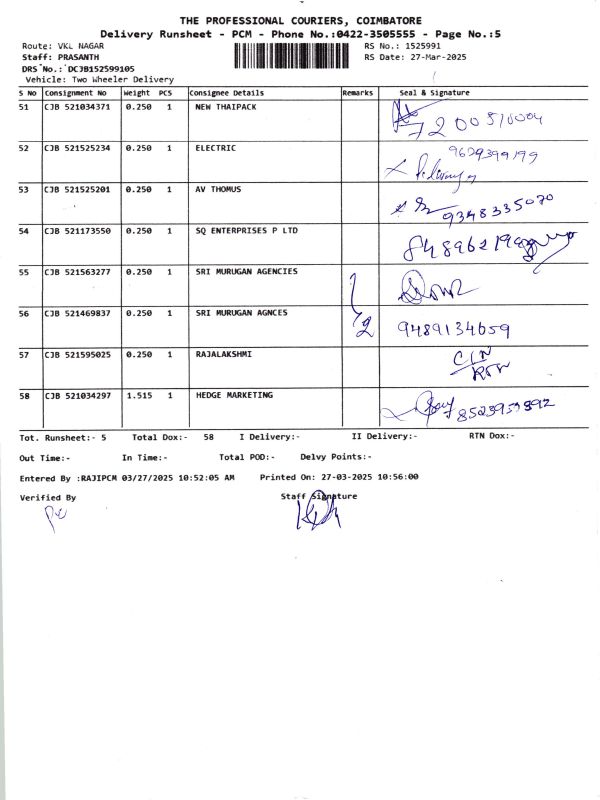 THE PROFESSIONAL COURIERS, COIMBATORE
Delivery Runsheet - PCM - Phone No.:0422-3505555 - Page No.:5
Route: VKL NAGAR RS No.: 1525991
Staff: PRASANTH RS Date: 27-Mar-2025
DRS No.: DCJB152599105
Vehicle: Two Wheeler Delivery
S No Consignment No Weight PCS Consignee Details Remarks Seal & Signature
51 CJB 521034371 0.250 1 NEW THAIPACK
52 CJB 521525234 0.250 1 ELECTRIC
9629399199
53 CJB 521525201 0.250 1 AV THOMUS
9348335070
54 CJB 521173550 0.250 1 SQ ENTERPRISES P LTD
55 CJB 521563277 0.250 1 SRI MURUGAN AGENCIES
56 CJB 521469837 0.250 1 SRI MURUGAN AGNCES
2 9489134659
57 CJB 521595025 0.250 1 RAJALAKSHMI
58 CJB 521034297 1.515 1 HEDGE MARKETING
Tot. Runsheet:- 5 Total Dox:- 58 I Delivery:- II Delivery:- RTN Dox:-
Out Time:- In Time:- Total POD:- Delvy Points:-
Entered By :RAJIPCM 03/27/2025 10:52:05 AM Printed On: 27-03-2025 10:56:00
Verified By Staff Signature